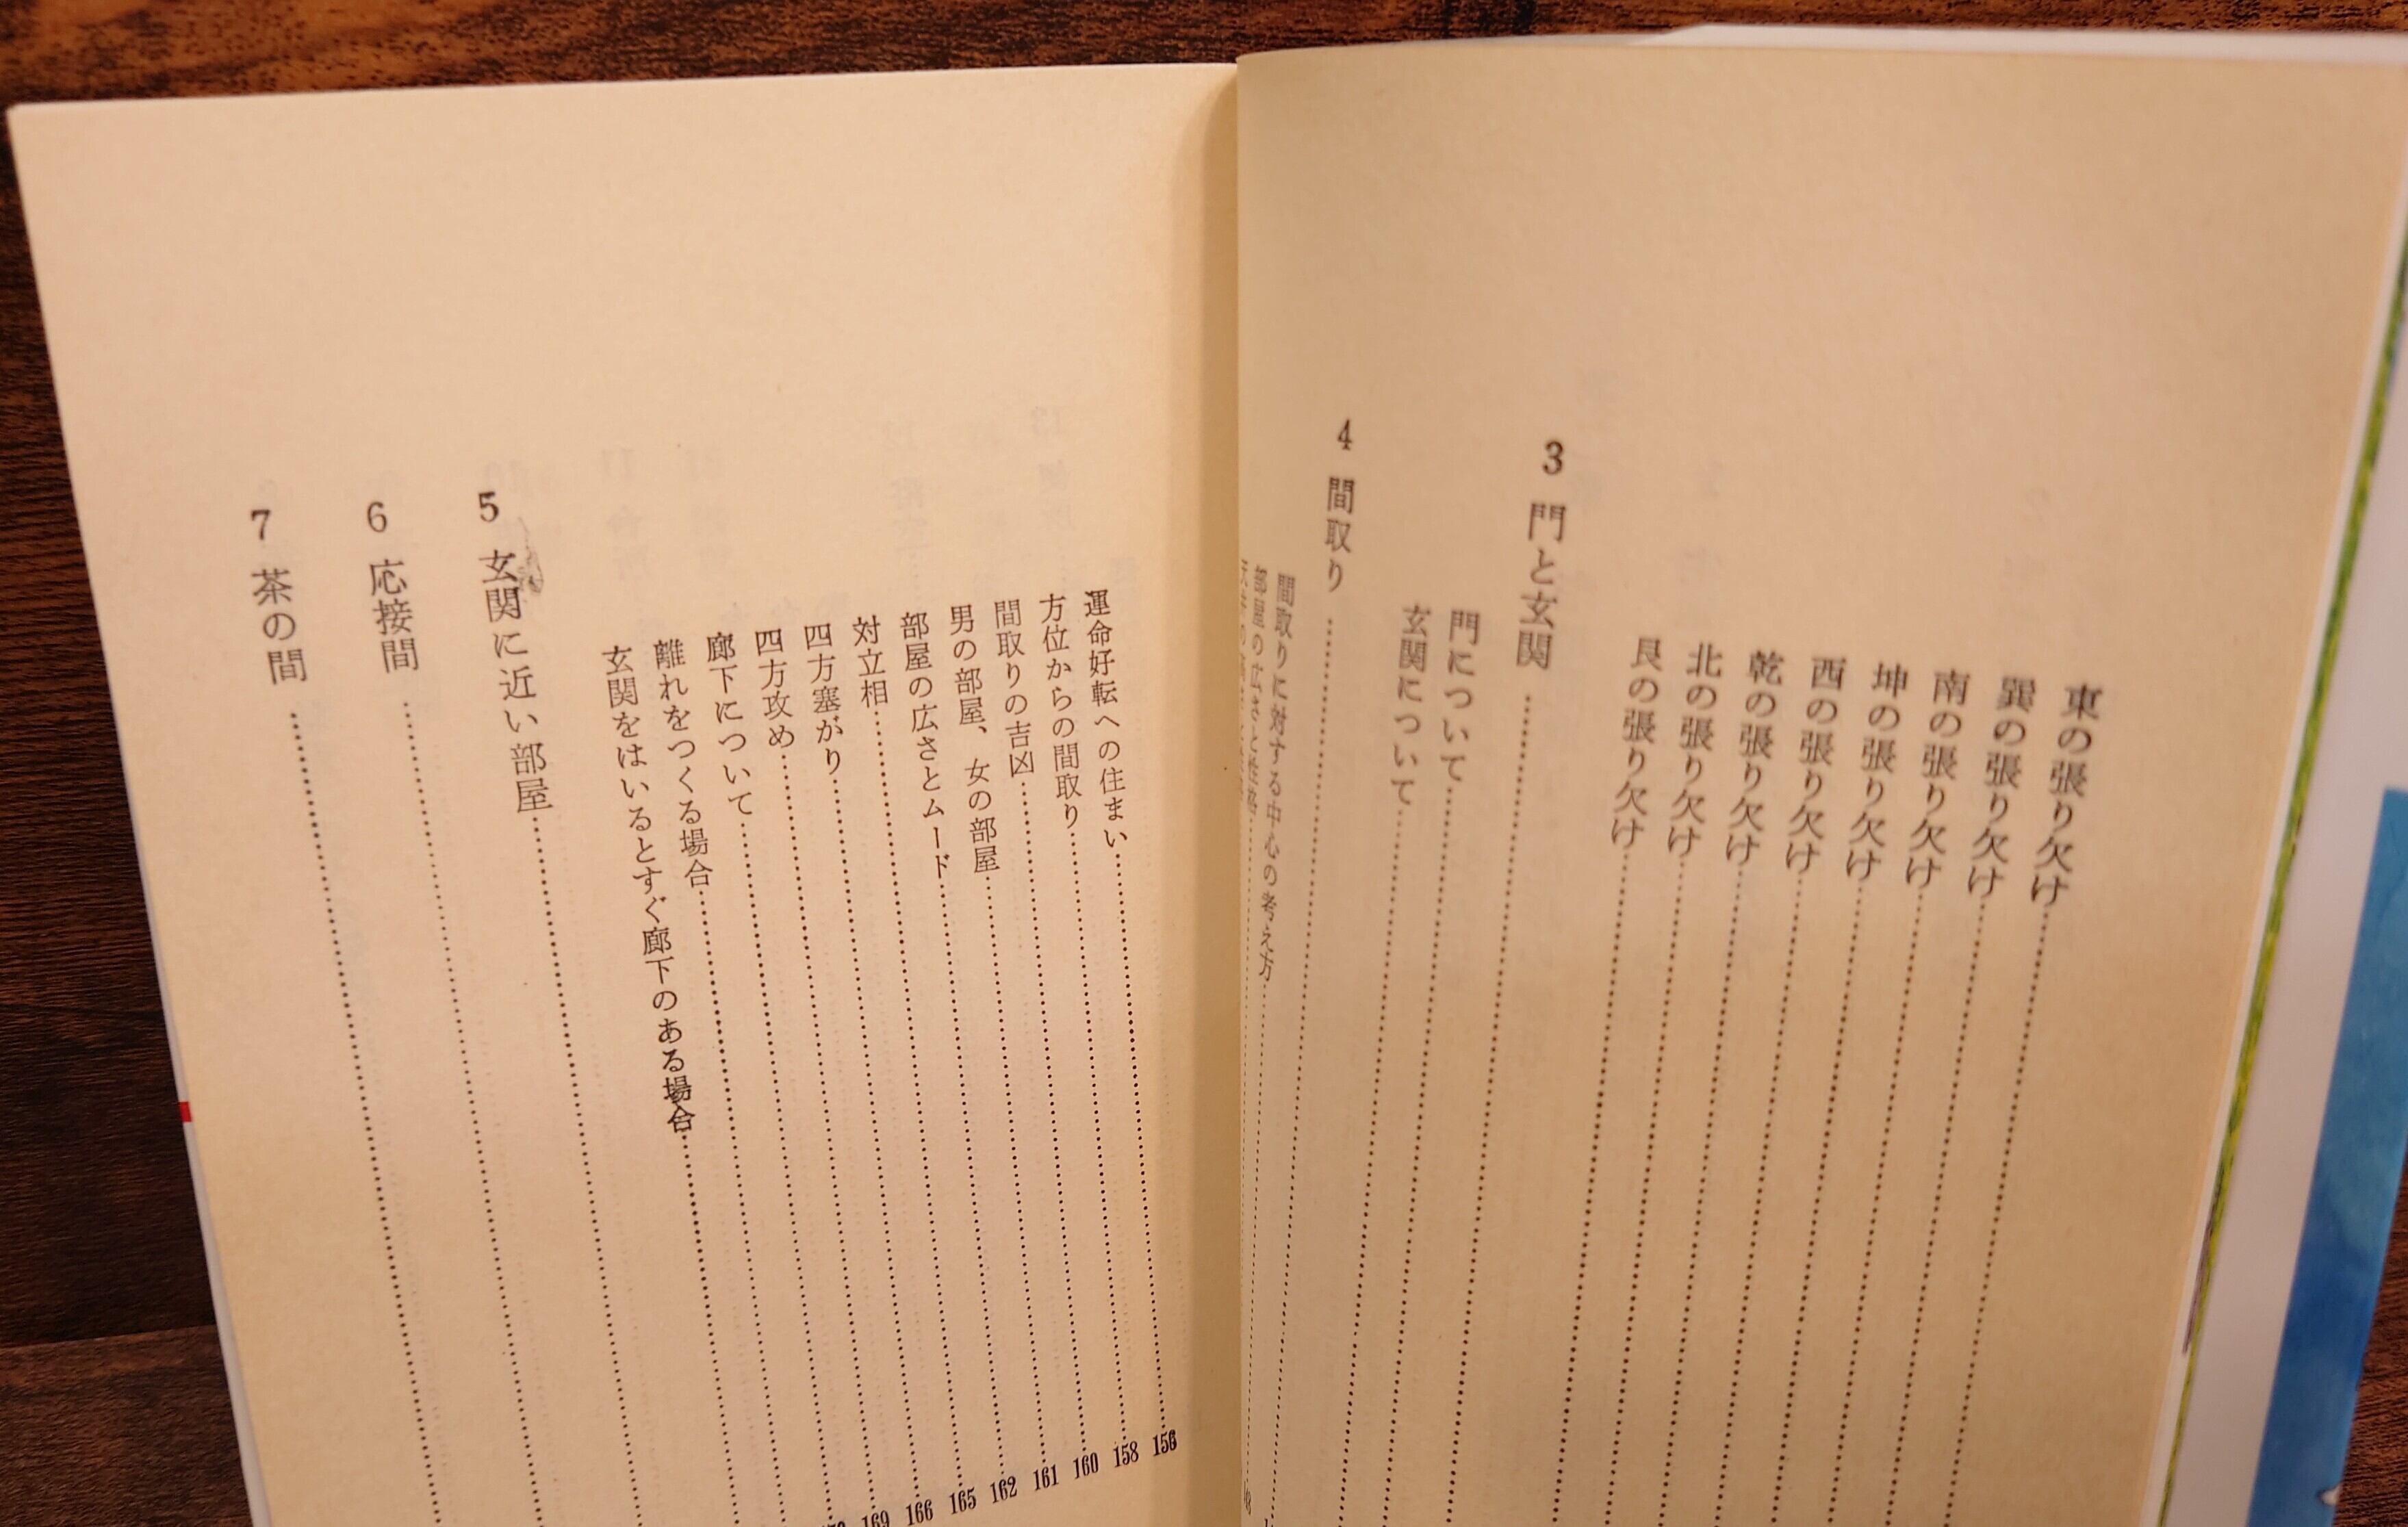 東の張り欠け
巽の張り欠け
南の張り欠け
坤の張り欠け
西の張り欠け
乾の張り欠け
北の張り欠け
艮の張り欠け
3 門と玄関
門について
玄関について
4 間取り
間取りに対する中心の考え方
部屋の広さと
運命好転への住まい 156
方位からの間取り 158
間取りの吉凶 160
男の部屋、女の部屋 161
部屋の広さとムード 162
対立相 165
四方塞がり 166
四方攻め 169
廊下について
離れをつくる場合
玄関をはいるとすぐ廊下のある場合
5 玄関に近い部屋
6 応接間
7 茶の間